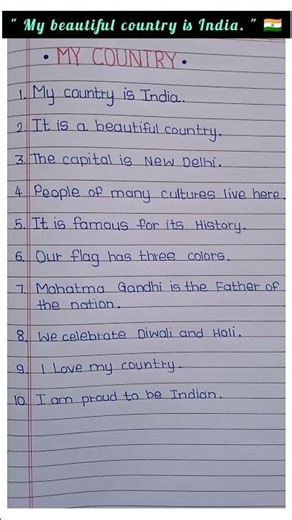 " My beautiful country is India. " 🇮🇳
• MY COUNTRY •
1. My country is India.
2. It is a beautiful country.
3. The capital is New Delhi.
4. People of many cultures live here.
5. It is famous for its History.
6. Our flag has three colors.
7. Mahatma Gandhi is the Father of
the nation.
8. We celebrate Diwali and Holi.
9. I Love my country.
10. I am proud to be Indian.